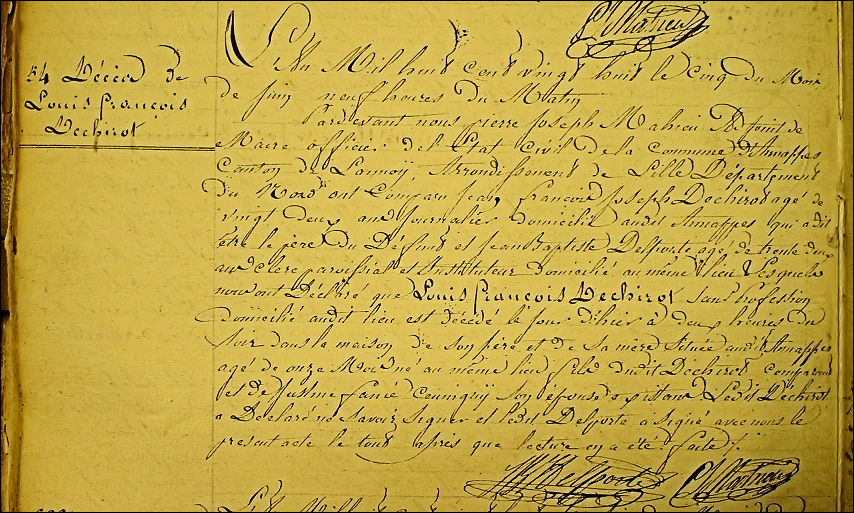 54 Décès de
Louis françois
Dechirot
L'An Mil huit cent vingt huit le Cinq du Mois
de juin neuf heures du Matin
Pardevant nous pierre Joseph Mahieu Adjoint de
Maire officier de l'Etat Civil de la Commune d'Annappes
Canton de Lannoÿ, Arrondissement de Lille Département
du Nord ont Comparu Jean françois Joseph Dechirot agé de
vingt deux ans Journalier domicilié audit Annappes qui a dit
être le père du Défunt et Jean Baptiste Delsporte, agé de trente deux
ans Clerc paroissial et Instituteur domicilié au même lieu Lesquels
nous ont Déclaré que Louis françois Dechirot sans Profession
domicilié audit lieu est Décédé le jour d'hier à deux heures du
soir dans la maison de son père et de sa mère située audit Annappes
agé de onze Mois né au même lieu fils dudit Dechirot Comparant
et de Justine son épouse Ledit Déchirot
a Declaré ne Savoir Signer et ledit Delsporte a Signé avec nous le
present acte le tout après que lecture en a été faite